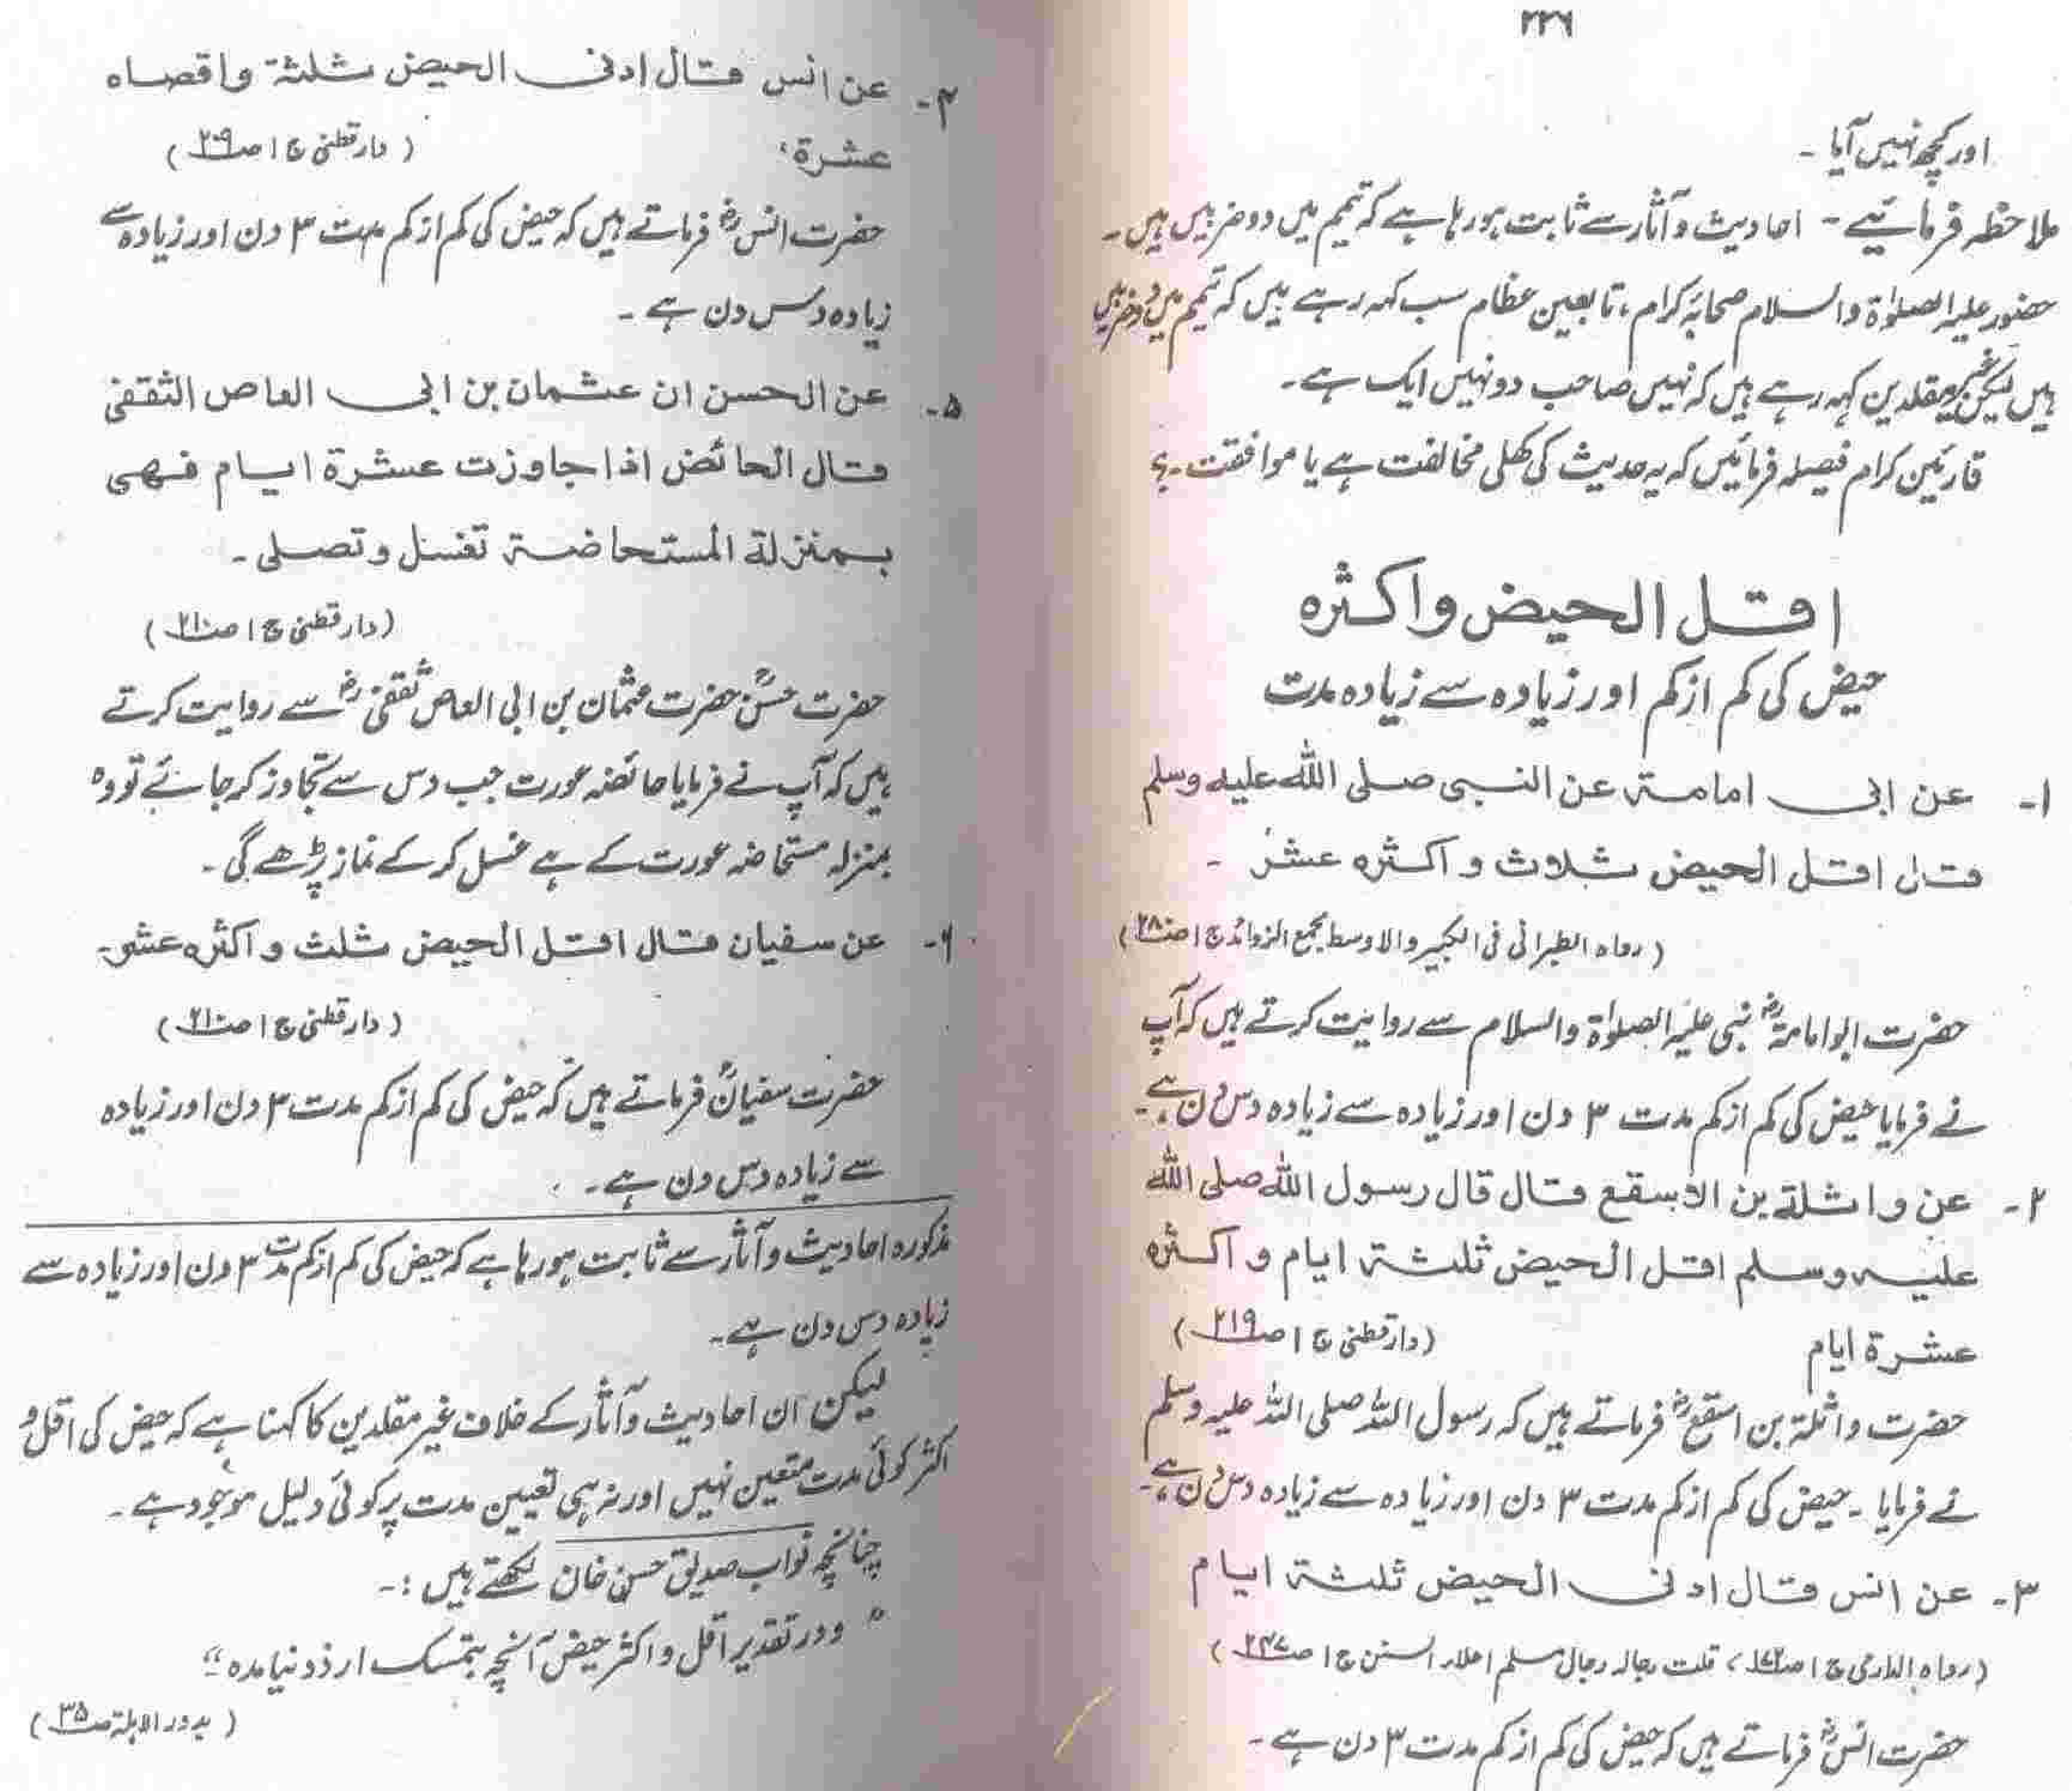 ۲۲۶
اور کچھ نہیں آیا ۔
ملاحظہ فرمائیے ۔ احادیث و آثار سے ثابت ہو رہا ہے کہ تیمم میں دو ضربیں ہیں ۔
حضور علیہ الصلوٰۃ والسلام صحابہ کرام ، تابعین عظام سب کہہ رہے ہیں کہ تیمم میں دو ضربیں
ہیں لیکن غیر مقلدین کہہ رہے ہیں کہ نہیں صاحب دو نہیں ایک ہے ۔
قارئین کرام فیصلہ فرمائیں کہ یہ حدیث کی کھلی مخالفت ہے یا موافقت ۔ ؟
اقل الحیض و اکثرہ
حیض کی کم از کم اور زیادہ سے زیادہ مدت
۱۔ عن ابی امامۃ عن النبی صلی اللہ علیہ وسلم
قال اقل الحیض ثلاث و اکثرہ عشر ۔
( رواہ الطبرانی فی الکبیر والاوسط مجمع الزوائد ج ۱ صـ۲۸۰ )
حضرت ابوامامۃؓ نبی علیہ الصلوٰۃ والسلام سے روایت کرتے ہیں کہ آپ
نے فرمایا حیض کی کم از کم مدت ۳ دن اور زیادہ سے زیادہ دس دن ہے ۔
۲۔ عن واثلۃ بن الاسقع قال قال رسول اللہ صلی اللہ
علیہ وسلم اقل الحیض ثلثۃ ایام و اکثرہ
عشرۃ ایام (دارقطنی ج ۱ صـ۲۱۹ )
حضرت واثلۃ بن اسقعؓ فرماتے ہیں کہ رسول اللہ صلی اللہ علیہ وسلم
نے فرمایا ۔ حیض کی کم از کم مدت ۳ دن اور زیادہ سے زیادہ دس دن ہے ۔
۳۔ عن انس قال ادنی الحیض ثلثۃ ایام
(رواہ الدارمی ج ۱ صـ۱۷۲ ، قلت رجالہ رجال مسلم اعلاء السنن ج ۱ صـ۲۴۷ )
حضرت انسؓ فرماتے ہیں کہ حیض کی کم از کم مدت ۳ دن ہے ۔
۴۔ عن انس قال ادنی الحیض ثلثۃ واقصاہ
عشرۃ ، ( دارقطنی ج ۱ صـ۲۰۹ )
حضرت انسؓ فرماتے ہیں کہ حیض کی کم از کم مدت ۳ دن اور زیادہ سے
زیادہ دس دن ہے ۔
۵۔ عن الحسن ان عثمان بن ابی العاص الثقفی
قال الحائض اذا جاوزت عشرۃ ایام فہی
بمنزلۃ المستحاضۃ تغسل وتصلی ۔
(دارقطنی ج ۱ صـ۲۱۰ )
حضرت حسنؒ حضرت عثمان بن ابی العاص ثقفیؓ سے روایت کرتے
ہیں کہ آپ نے فرمایا حائضہ عورت جب دس سے تجاوز کر جائے تو وہ
بمنزلہ مستحاضہ عورت کے ہے غسل کر کے نماز پڑھے گی ۔
۶۔ عن سفیان قال اقل الحیض ثلث و اکثرہ عشر ۔
( دارقطنی ج ۱ صـ۲۱۰ )
حضرت سفیانؒ فرماتے ہیں کہ حیض کی کم از کم مدت ۳ دن اور زیادہ
سے زیادہ دس دن ہے ۔
مذکورہ احادیث و آثار سے ثابت ہو رہا ہے کہ حیض کی کم از کم مدت ۳ دن اور زیادہ سے
زیادہ دس دن ہے ۔
لیکن ان احادیث و آثار کے خلاف غیر مقلدین کا کہنا ہے کہ حیض کی اقل و
اکثر کوئی مدت متعین نہیں اور نہ ہی تعیین مدت پر کوئی دلیل موجود ہے ۔
چنانچہ نواب صدیق حسن خان لکھتے ہیں :۔
" و در تقدیر اقل و اکثر حیض آنچہ بتمسک ارزد نیامدہ "
( بدور الاہلۃ صـ۳۵ )